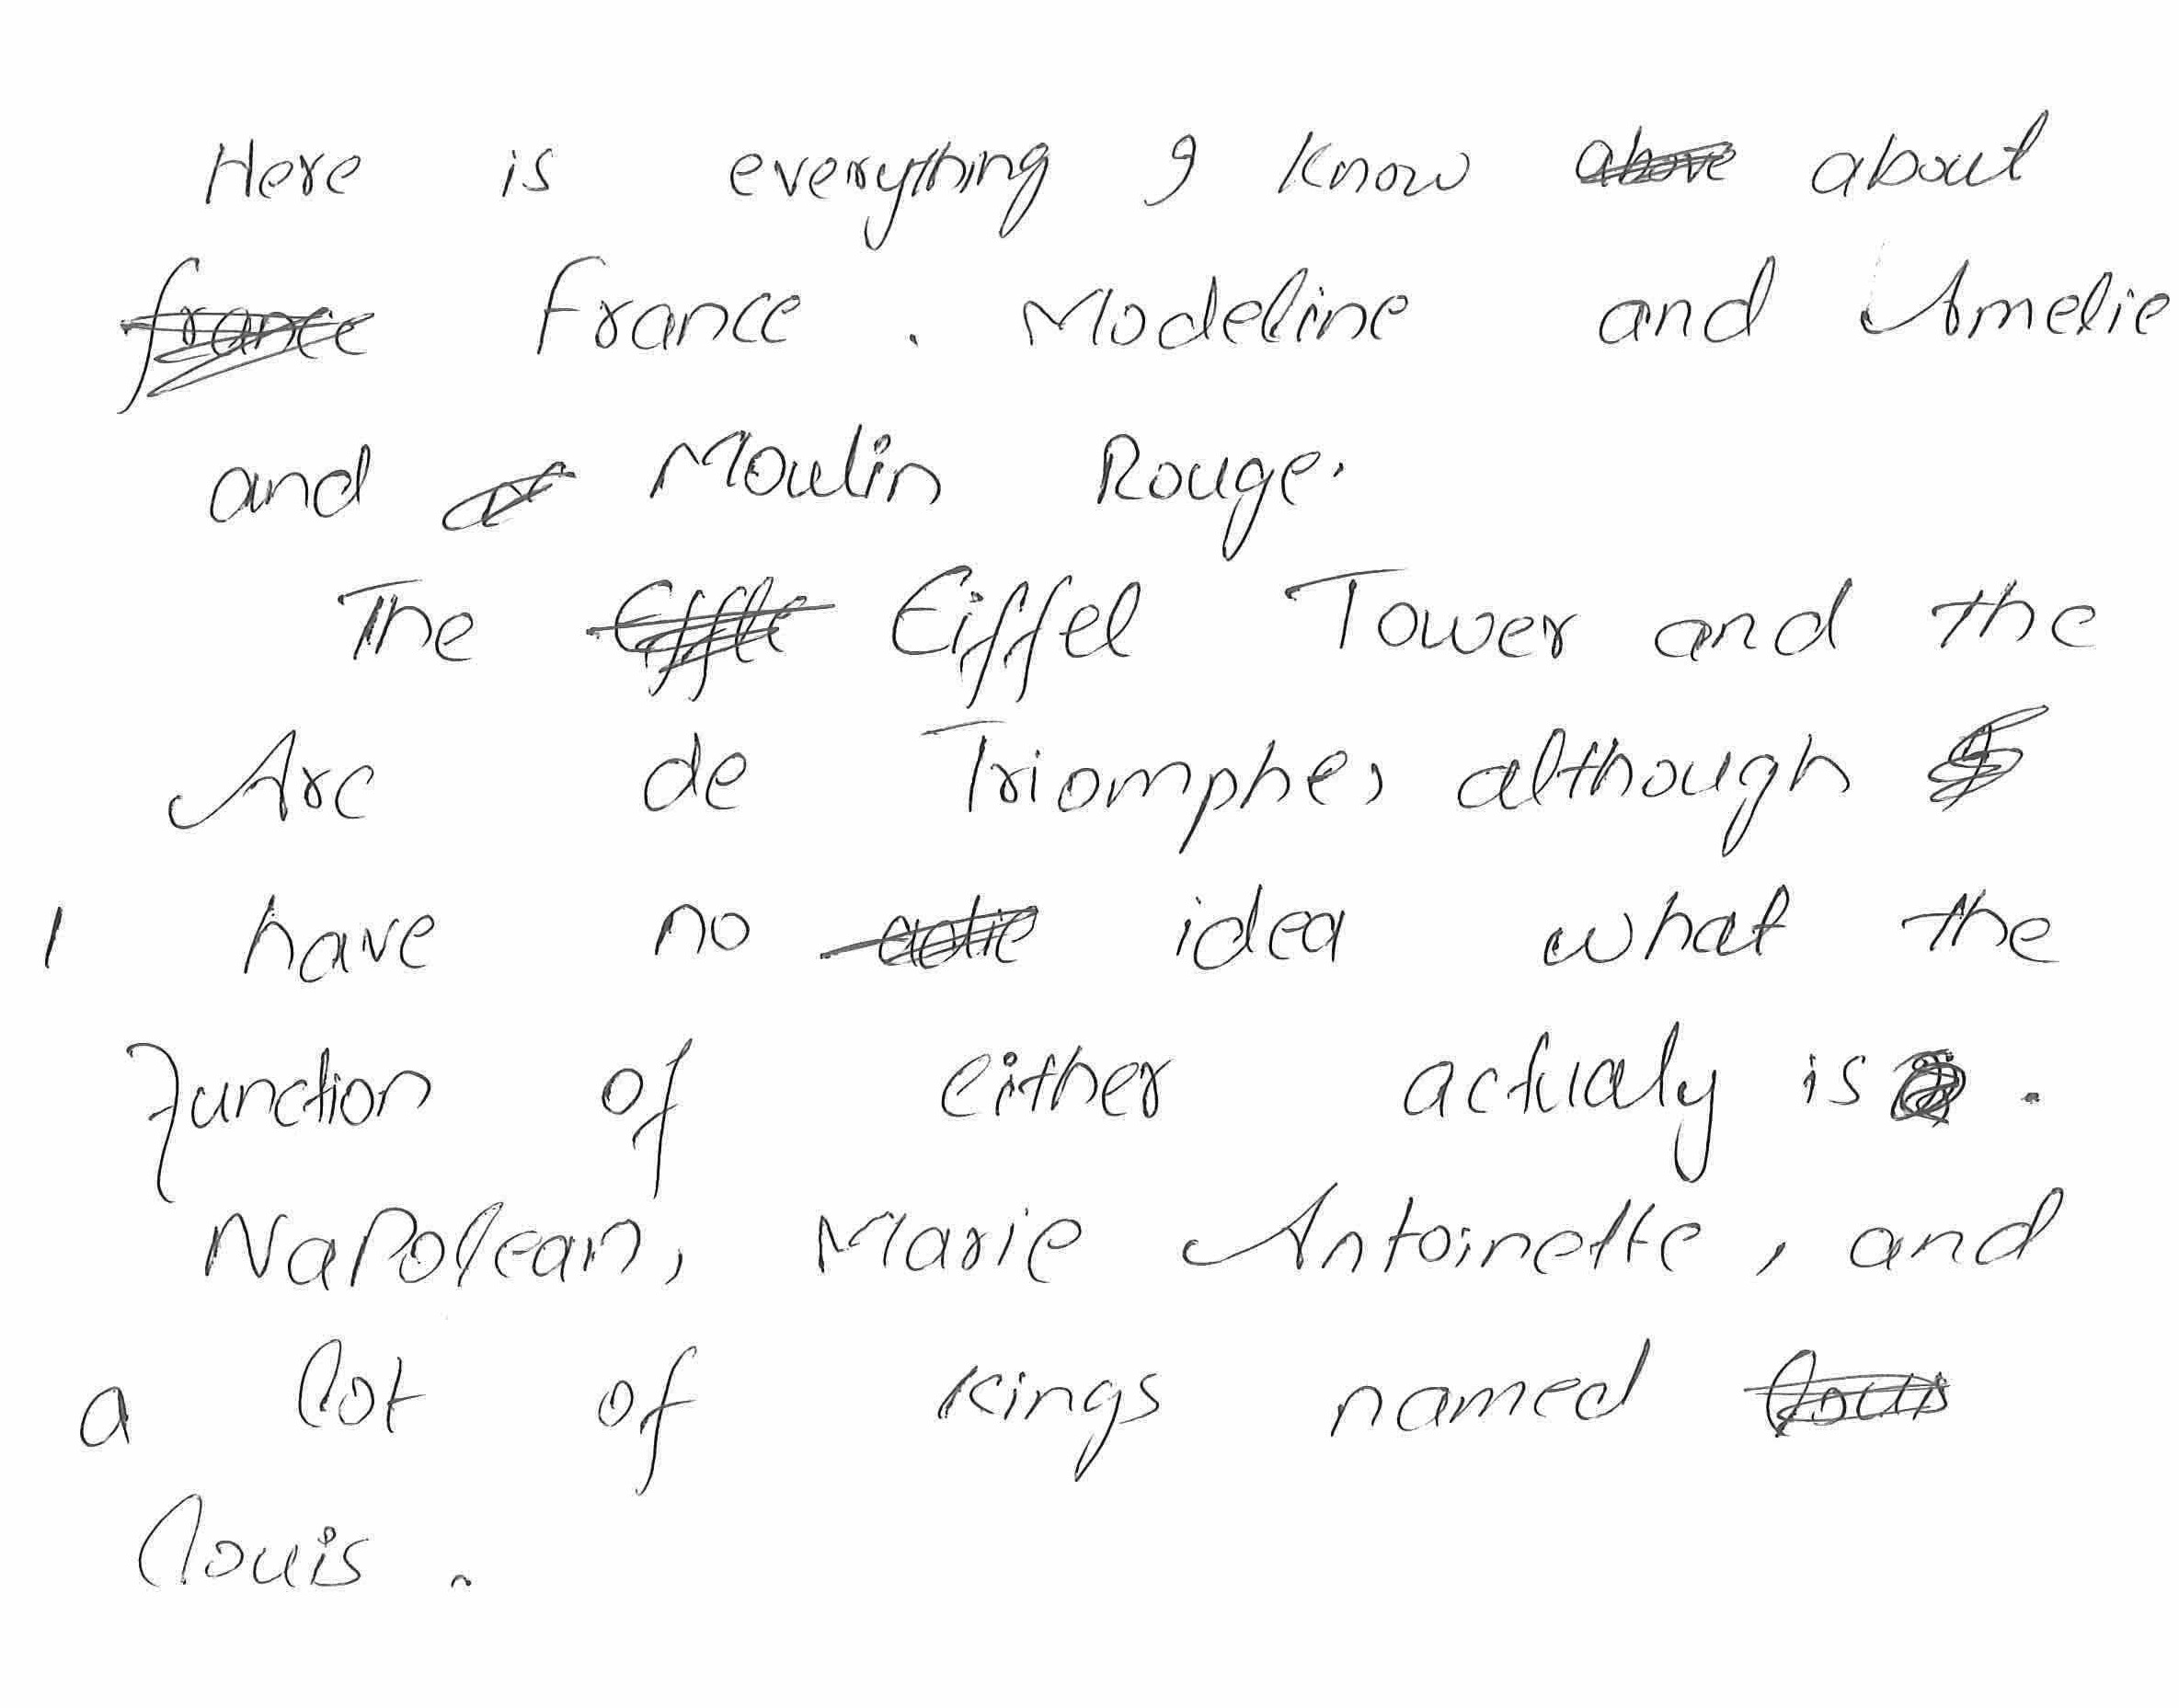 Here is everything I know above about
france France. Modeline and Amelie
and Moulin Rouge.
The Effle Eiffel Tower and the
Arc de Triomphe, although
I have no idea what the
function of either actualy is.
Napolean, Marie Antoinette, and
a lot of Kings named Louis
Louis.